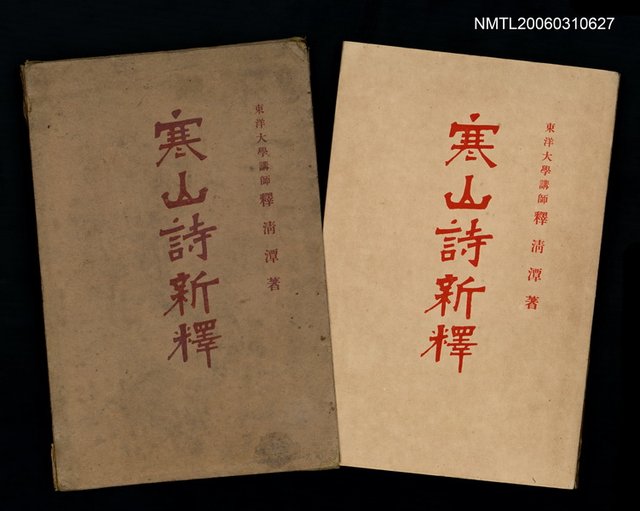 NMTL20060310627
東洋大學講師 釋清潭著
寒山詩新釋
東洋大學講師 釋清潭著
寒山詩新釋